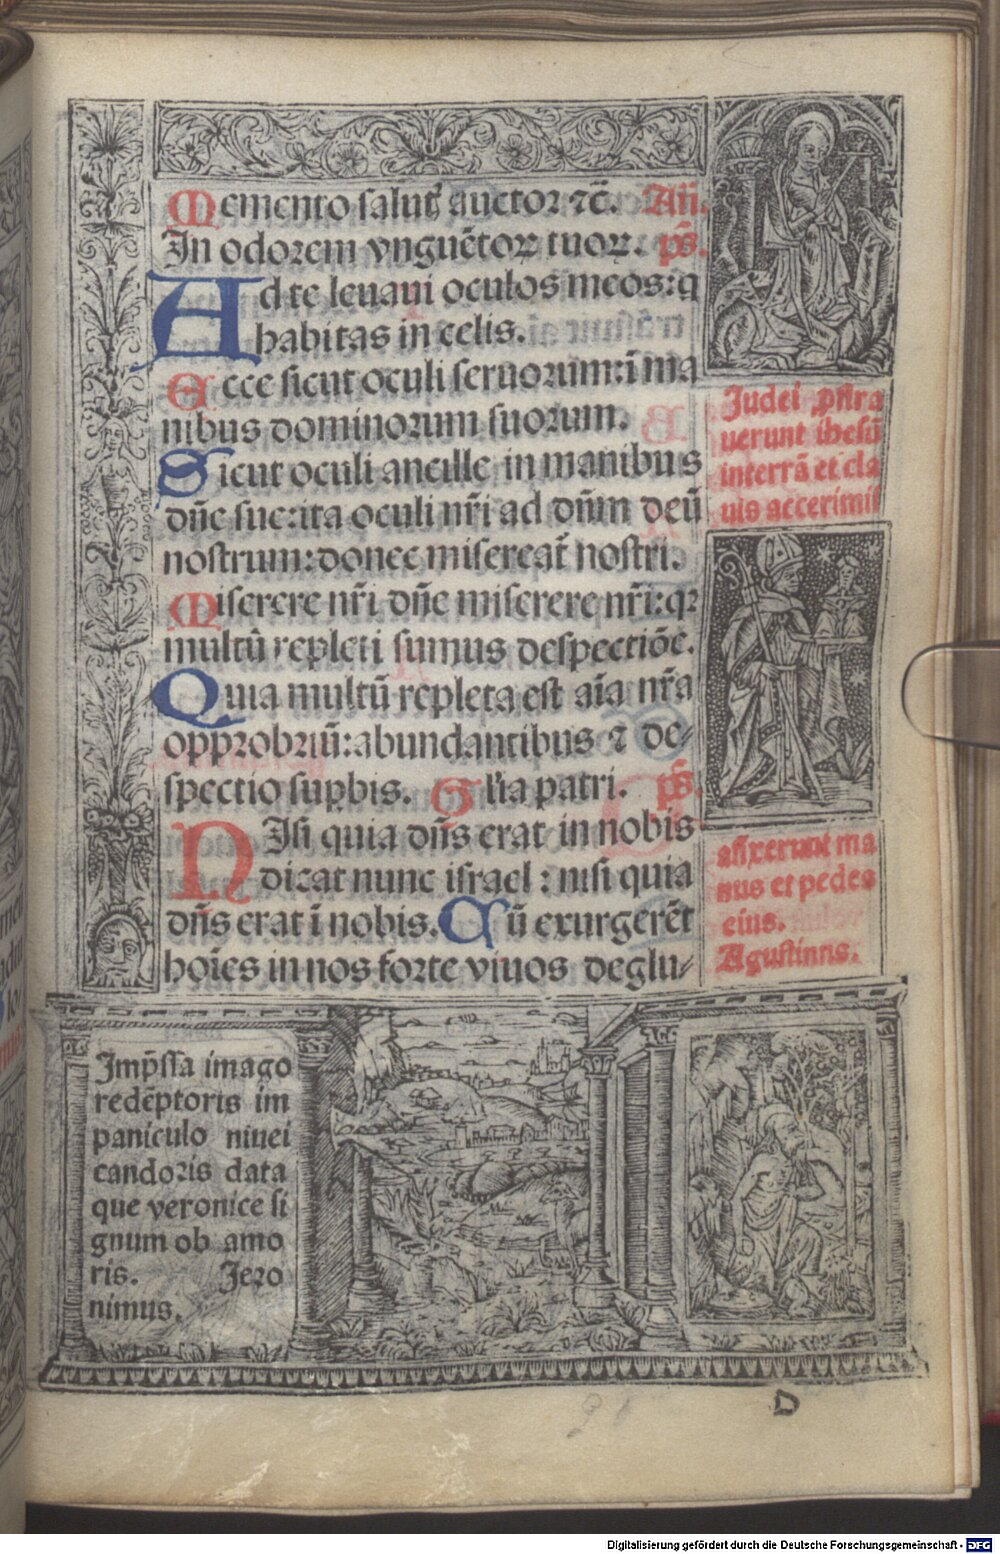 Memento salut̉ auctor ⁊c̄. Añ.
In odorem vnguētoꝝ tuoꝝ. p̄s.
Ad te leuaui oculos meos: q
habitas in celis.
Ecce sicut oculi seruorum: ī ma
nibus dominorum suorum.
Sicut oculi ancille in manibus
dn̄e sue: ita oculi nr̄i ad dn̄m deū
nostrum: donec misereat̄ nostri.
Miserere nr̄i dn̄e miserere nr̄i: qꝛ
multū repleti sumus despectiōe.
Quia multū repleta est aīa nr̄a
opprobriū: abundantibus ⁊ de⸗
spectio suꝑbis. Gl̄ia patri. p̄s.
NIsi quia dn̄s erat in nobis
dicat nunc israel: nisi quia
dn̄s erat ī nobis. Cū exurgerēt
hoīes in nos forte viuos deglu⸗
Judei ꝓstra
uerunt ihesū
interrā et cla
uis accerimis
afixerunt ma
nus et pedes
eius.
Agustinus.
Imp̄ssa imago
redēptoris im
paniculo niuei
candoris data
que veronice si
gnum ob amo
ris. Jero
nimus.
D
Digitalisierung gefördert durch die Deutsche Forschungsgemeinschaft - DFG